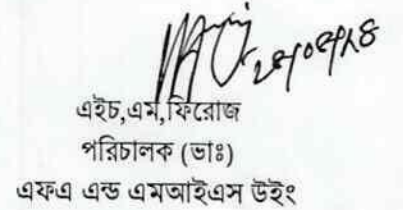 এইচ,এম,ফিরোজ
পরিচালক (ভাঃ)
এফএ এন্ড এমআইএস উইং